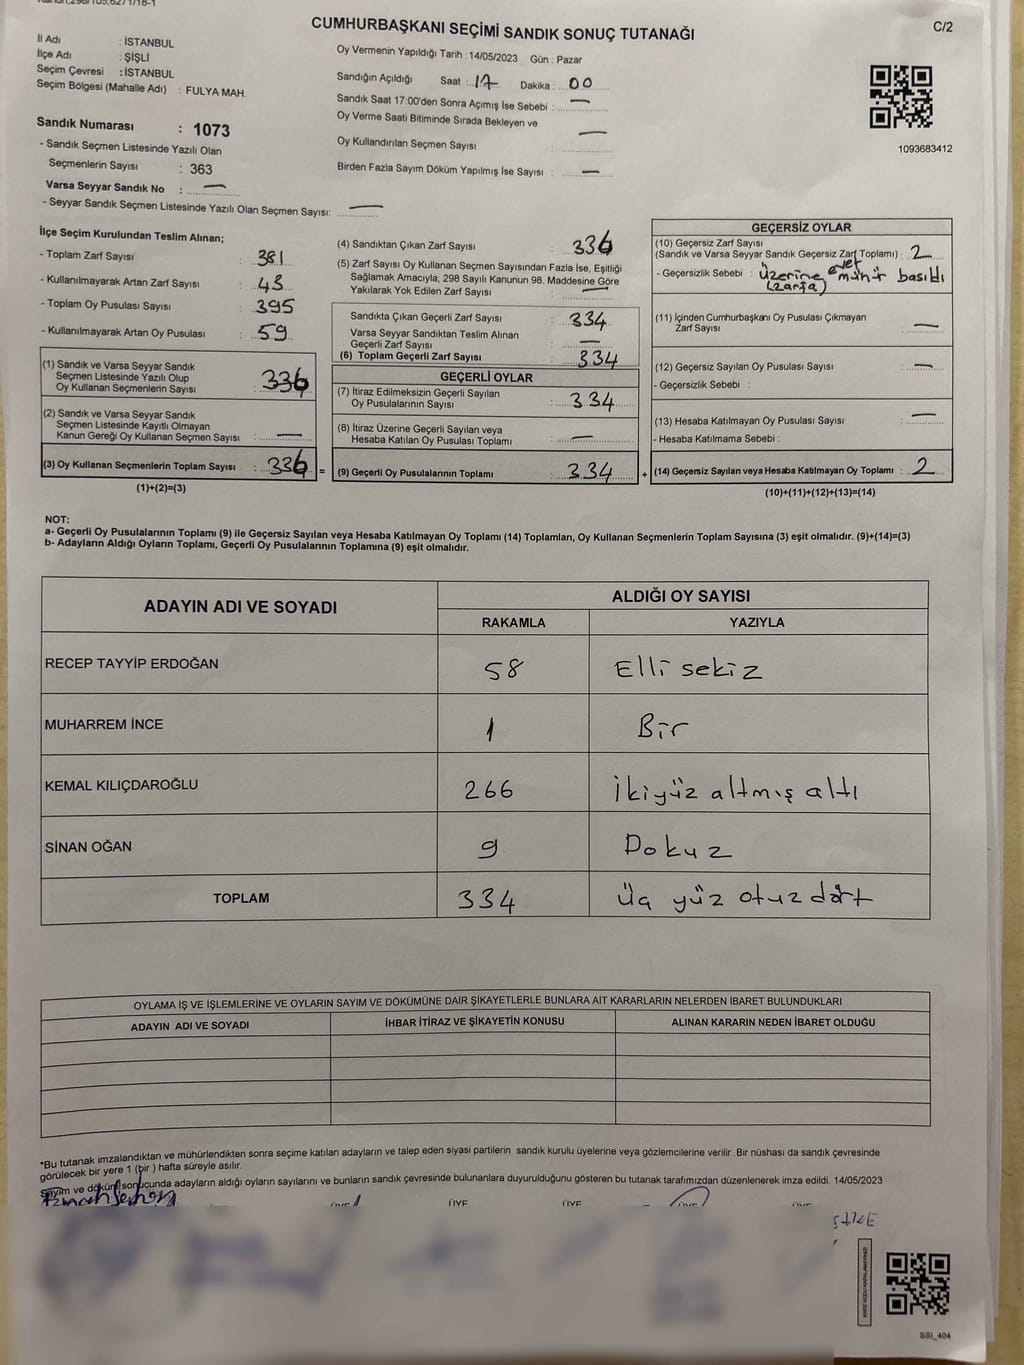 CUMHURBAŞKANI SEÇİMİ SANDIK SONUÇ TUTANAĞI
C/2
İl Adı : İSTANBUL
İlçe Adı : ŞİŞLİ
Seçim Çevresi : İSTANBUL
Seçim Bölgesi (Mahalle Adı) : FULYA MAH.
Sandık Numarası : 1073
- Sandık Seçmen Listesinde Yazılı Olan
Seçmenlerin Sayısı : 363
Varsa Seyyar Sandık No : —
- Seyyar Sandık Seçmen Listesinde Yazılı Olan Seçmen Sayısı: —
Oy Vermenin Yapıldığı Tarih : 14/05/2023 Gün : Pazar
Sandığın Açıldığı Saat : 17 Dakika : 00
Sandık Saat 17:00'den Sonra Açımış İse Sebebi : —
Oy Verme Saati Bitiminde Sırada Bekleyen ve
Oy Kullandırılan Seçmen Sayısı : —
Birden Fazla Sayım Döküm Yapılmış İse Sayısı : —
1093683412
İlçe Seçim Kurulundan Teslim Alınan;
- Toplam Zarf Sayısı : 381
- Kullanılmayarak Artan Zarf Sayısı : 43
- Toplam Oy Pusulası Sayısı : 395
- Kullanılmayarak Artan Oy Pusulası : 59
(1) Sandık ve Varsa Seyyar Sandık
Seçmen Listesinde Yazılı Olup
Oy Kullanan Seçmenlerin Sayısı : 336
(2) Sandık ve Varsa Seyyar Sandık
Seçmen Listesinde Kayıtlı Olmayan
Kanun Gereği Oy Kullanan Seçmen Sayısı : —
(3) Oy Kullanan Seçmenlerin Toplam Sayısı : 336 =
(1)+(2)=(3)
(4) Sandıktan Çıkan Zarf Sayısı : 336
(5) Zarf Sayısı Oy Kullanan Seçmen Sayısından Fazla İse, Eşitliği
Sağlamak Amacıyla, 298 Sayılı Kanunun 98. Maddesine Göre
Yakılarak Yok Edilen Zarf Sayısı : —
Sandıkta Çıkan Geçerli Zarf Sayısı : 334
Varsa Seyyar Sandıktan Teslim Alınan
Geçerli Zarf Sayısı : —
(6) Toplam Geçerli Zarf Sayısı : 334
GEÇERLİ OYLAR
(7) İtiraz Edilmeksizin Geçerli Sayılan
Oy Pusulalarının Sayısı : 334
(8) İtiraz Üzerine Geçerli Sayılan veya
Hesaba Katılan Oy Pusulası Toplamı : —
(9) Geçerli Oy Pusulalarının Toplamı : 334 +
GEÇERSİZ OYLAR
(10) Geçersiz Zarf Sayısı
(Sandık ve Varsa Seyyar Sandık Geçersiz Zarf Toplamı) : 2
- Geçersizlik Sebebi : Üzerine evet mühür basıldı
(zarfa)
(11) İçinden Cumhurbaşkanı Oy Pusulası Çıkmayan
Zarf Sayısı : —
(12) Geçersiz Sayılan Oy Pusulası Sayısı : —
- Geçersizlik Sebebi :
(13) Hesaba Katılmayan Oy Pusulası Sayısı : —
- Hesaba Katılmama Sebebi :
(14) Geçersiz Sayılan veya Hesaba Katılmayan Oy Toplamı : 2
(10)+(11)+(12)+(13)=(14)
NOT:
a- Geçerli Oy Pusulalarının Toplamı (9) ile Geçersiz Sayılan veya Hesaba Katılmayan Oy Toplamı (14) Toplamları, Oy Kullanan Seçmenlerin Toplam Sayısına (3) eşit olmalıdır. (9)+(14)=(3)
b- Adayların Aldığı Oyların Toplamı, Geçerli Oy Pusulalarının Toplamına (9) eşit olmalıdır.
ADAYIN ADI VE SOYADI
ALDIĞI OY SAYISI
RAKAMLA YAZIYLA
RECEP TAYYİP ERDOĞAN 58 Elli sekiz
MUHARREM İNCE 1 Bir
KEMAL KILIÇDAROĞLU 266 İkiyüz altmış altı
SİNAN OĞAN 9 Dokuz
TOPLAM 334 Üç yüz otuz dört
OYLAMA İŞ VE İŞLEMLERİNE VE OYLARIN SAYIM VE DÖKÜMÜNE DAİR ŞİKAYETLERLE BUNLARA AİT KARARLARIN NELERDEN İBARET BULUNDUKLARI
ADAYIN ADI VE SOYADI İHBAR İTİRAZ VE ŞİKAYETİN KONUSU ALINAN KARARIN NEDEN İBARET OLDUĞU
*Bu tutanak imzalandıktan ve mühürlendikten sonra seçime katılan adayların ve talep eden siyasi partilerin sandık kurulu üyelerine veya gözlemcilerine verilir. Bir nüshası da sandık çevresinde
görülecek bir yere 1 (bir) hafta süreyle asılır.
Sayım ve döküm sonucunda adayların aldığı oyların sayılarını ve bunların sandık çevresinde bulunanlara duyurulduğunu gösteren bu tutanak tarafımızdan düzenlenerek imza edildi. 14/05/2023
ÜYE ÜYE ÜYE ÜYE ÜYE
SSI_404